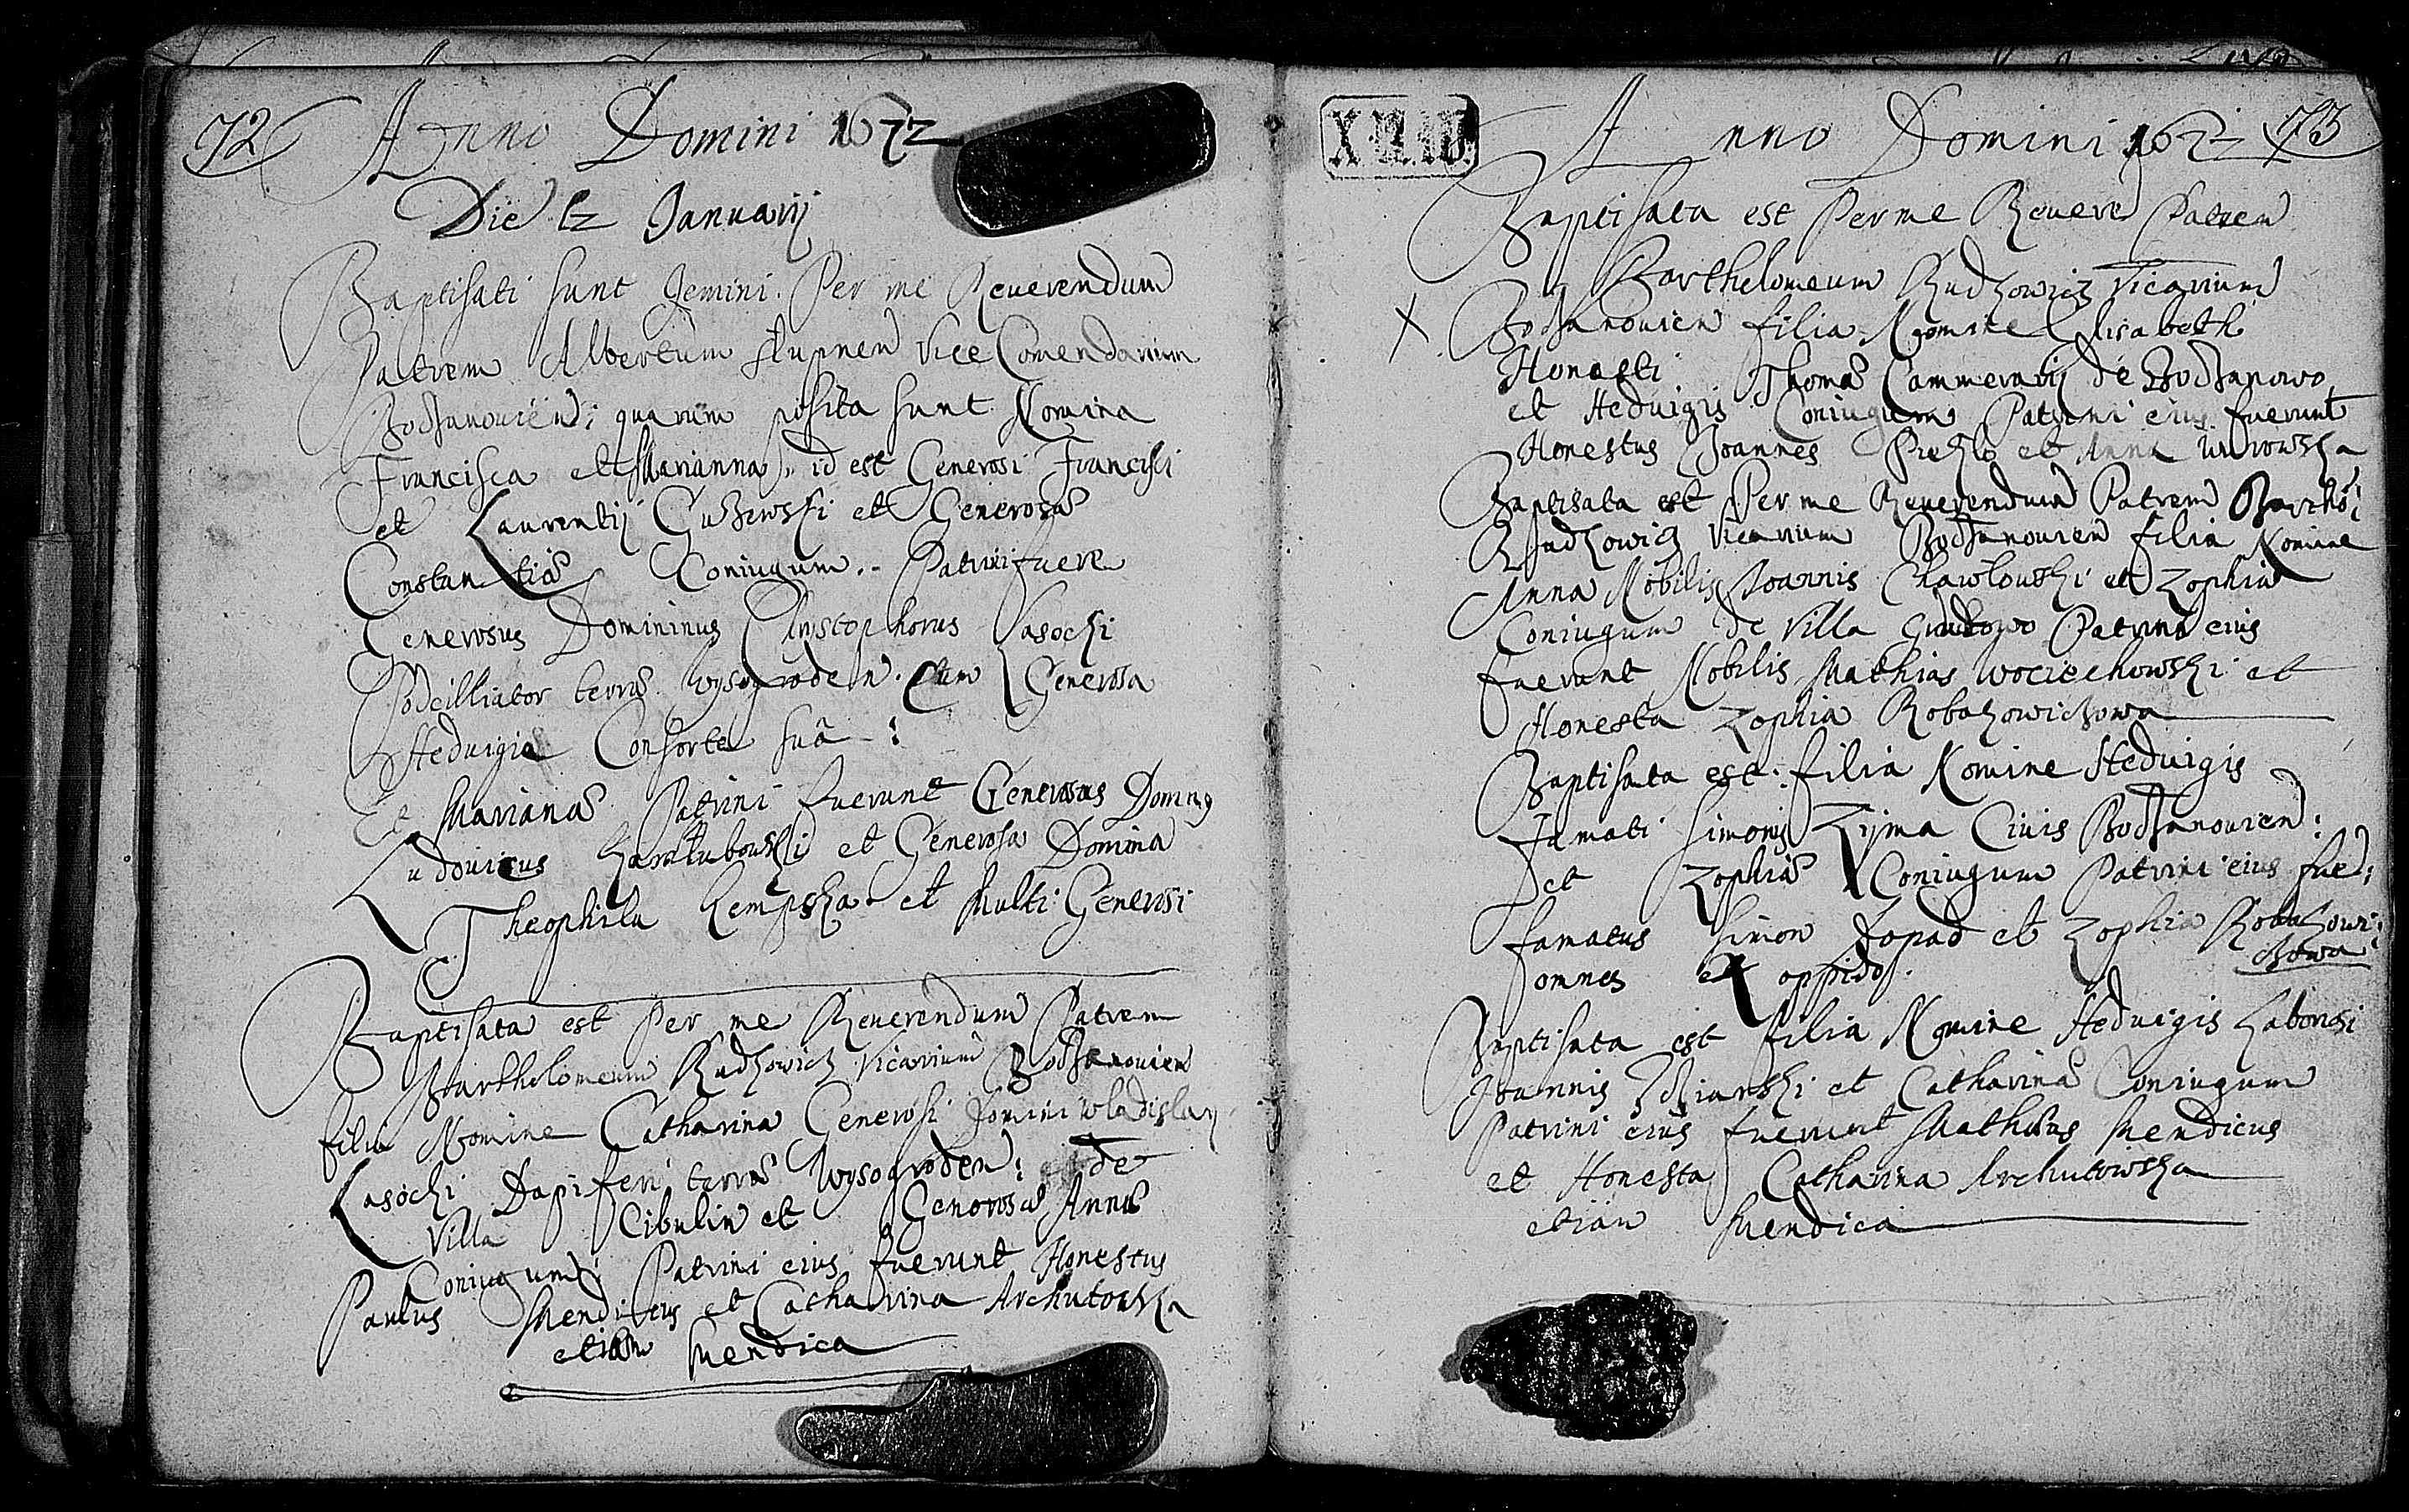 72
Anno Domini 1672
Die 12 Januarij
Baptisati sunt Gemini. Per me Reuerendum
Patrem Albertum Slupnen Vice Comendarium
Bodzanouien: quarum posita sunt Nomina
Francisca et Marianna. id est Generosi Francisci
et Laurentij et Generosæ
Constantiæ Coniugum. Patrini fuere
Generosus Domininus Christophorus Lasocki
terræ Wysogroden. Cum Generosa
Heduigia Consorte suâ :
Et Marianæ Patrini fuerunt Generosus Domin9
Ludouicus et Generosa Domina
Theophila Kempska et Multi Generosi
Baptisata est Per me Reuerendum Patrem
Bartholomeum Rudkowicz Vicarium Bodzanouien
filia Nomine Catharina Generosi Domini Wladislai
Lasocki Dapiferi terræ Wysogroden: de
Villa Cibulin et Generosæ Annæ
Coniugum: Patrini eius fuerunt Honestus
Paulus Mendicus et Catharina Archutowska
etiam Mendica
73
Anno Domini 1672
Baptisata est Per me Reuered Patrem
Bartholomeum Rudkowicz Vicarium
X Bodzanouien filia Nomine Elisabeth
Honesti Thomæ Cammerarij de Bodzanowo
et Heduigis Coniugum Patrini eius fuerunt
Honestus Joannes et Anna
Baptisata est Per me Reuerendum Patrem Bartho:
Rudkowicz Vicarium Bodzanouien filia Nomine
Anna Nobilis Joannis Chawlowski et Zophiæ
Coniugum de Villa Patrini eius
fuerunt Nobilis Mathias Wociechowski et
Honesta Zophia Robakowiczowa
Baptisata est filia Nomine Heduigis
Famati Simonis Zyma Ciuis Bodzanouien:
et Zophiæ Coniugum Patrini eius fue:
famatus Simon et Zophia Robakowi:
czowa
omnes ex oppido.
Baptisata est filia Nomine Heduigis Laboriosi
Joannis et Catharinæ Coniugum
Patrini eius fuerunt Mathias Mendicus
et Honesta Catharina Archutowska
etiam Mendica